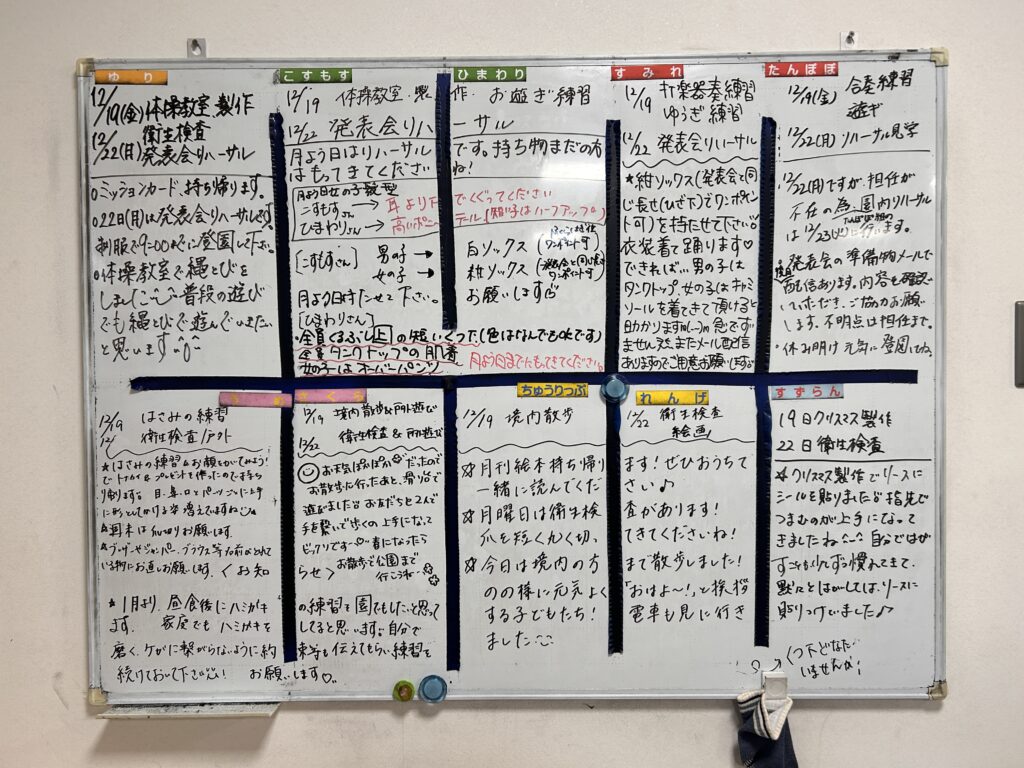 ゆり
12/19(金)体操教室 製作
衛生検査
12/22(月)発表会リハーサル
○ミッションカード、持ち帰ります。
○22日(月)は発表会リハーサルです。
制服で9:00までに登園して下さい。
○体操教室で縄とびを
しました 普段の遊び
でも縄とびで遊んでいきたい
と思います
こすもす
ひまわり
12/19 体操教室・製作・お遊ぎ練習
12/22 発表会リハーサル
月よう日はリハーサルです。持ち物まだの方
はもってきてくださいね!
月よう日女の子髪型
こすもすさん→耳より下でくくってください
ひまわりさん→高いポニーテール(短い子はハーフアップ)
[こすもすさん] 男の子→白ソックス(ワンポイント可)
女の子→紺ソックス(発表会と同じ長さワンポイント可)
月よう日持たせて下さい。お願いします
[ひまわりさん]
・全員くるぶし上の短いくつ下(色はなんでもokです)
全員タンクトップの肌着
女の子はオーバーパンツ
月よう日までにもってきてください。
すみれ
12/19 打楽器奏練習
ゆうぎ練習
12/22 発表会リハーサル
★紺ソックス(発表会と同
じ長さ(ひざ下)でワンポイン
ト可)を持たせて下さい。
衣装着て踊ります♡
できれば…男の子は
タンクトップ、女の子はキャミ
ソールを着てきて頂けると
助かりますm(_ _)m 急ですみ
ません またメール配信
ありますのでご用意お願いします
たんぽぽ
12/19(金) 合奏練習
遊ぎ
12/22(月) リハーサル見学
12/22(月)ですが、担任が
不在の為、園内リハーサル
たんぽぽ組の
は12/23(火)に行います。
・発表会の準備物メールで
配信あります。内容を確認し
ていただき、ご協力のお願い
します。不明点は担任まで。
・休み明け元気に登園してね。
うめ
12/19 はさみの練習
衛生検査/アウト
★はさみの練習&お顔をかいてみよう!
でトナカイ&プレゼントを作ったので持ち
帰ります
★週末は
さくら
12/19 境内散歩&戸外遊び
12/22 衛生検査&戸外遊び
お天気ぽかぽか だったので
お散歩に行ったあと、滑り台で
遊びました お友だちと2人で
手を繋いで歩くの上手になって
ビックリです 春になったら
お散歩で公園まで
行こうね
<お知らせ>
★1月より、昼食後にハミガキの練習を園でもしたいと思って
ます。家庭でもハミガキをしてると思います 自分で
磨く、ケガに繋がらないように約束等も伝えてもらい練習を
続けておいて下さい お願いします♡
ちゅうりっぷ
れんげ
12/19 境内散歩
12/22 衛生検査
絵画
☆月刊絵本持ち帰ります!ぜひおうちで
一緒に読んでください♪
☆月曜日は衛生検査があります!
爪を短く丸く切ってきてくださいね!
☆今日は境内の方まで散歩しました!
「おはよ〜!」と挨拶
する子どもたち!電車も見に行き
ました
すずらん
19日クリスマス製作
22日衛生検査
☆クリスマス製作でリースに
シールを貼りました 指先で
つまむのが上手になって
きましたね 自分ではが
すことも少しずつ慣れてきて、
黙々とはがしては、リースに
貼りつけていました♪
くつ下どなたか
いませんか!